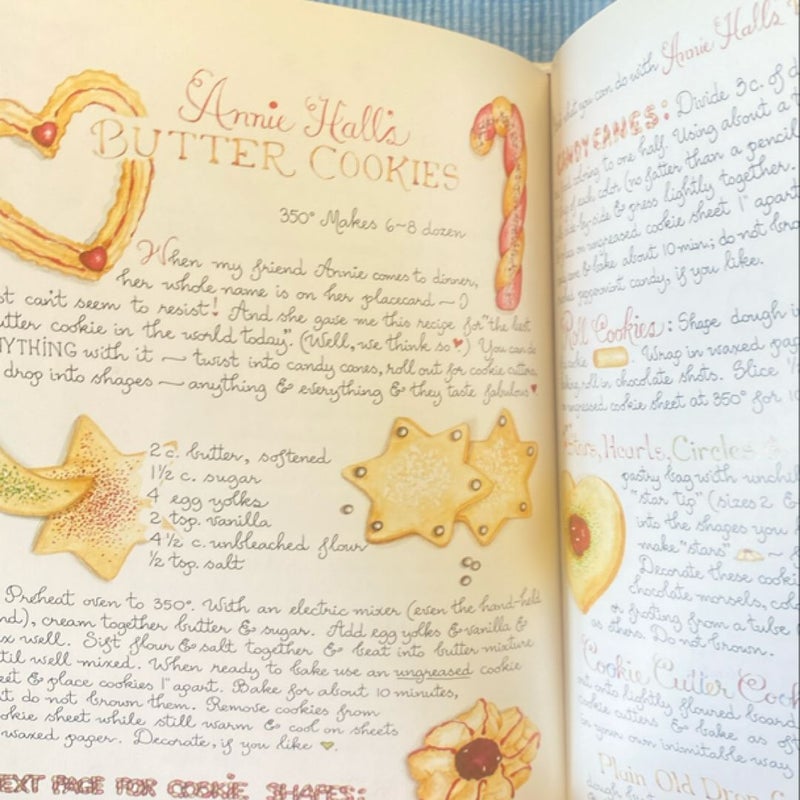 Annie Hall's
BUTTER COOKIES
350° Makes 6~8 dozen
When my friend Annie comes to dinner,
her whole name is on her placecard —
can't seem to resist! And she gave me this recipe for "the best
butter cookie in the world today". (Well, we think so ♥.) You can do
ANYTHING with it — twist into candy canes, roll out for cookie cutters,
drop into shapes — anything & everything & they taste fabulous ♥.
2 c. butter, softened
1½ c. sugar
4 egg yolks
2 tsp. vanilla
4½ c. unbleached flour
½ tsp. salt
Preheat oven to 350°. With an electric mixer (even the hand-held
cream together butter & sugar. Add egg yolks & vanilla &
well. Sift flour & salt together & beat into butter mixture
well mixed. When ready to bake use an ungreased cookie
& place cookies 1" apart. Bake for about 10 minutes,
do not brown them. Remove cookies from
cookie sheet while still warm & cool on sheets
waxed paper. Decorate, if you like
NEXT PAGE FOR COOKIE SHAPES:
what you can do with Annie Hall's
CANDY CANES: Divide 3 c. of
coloring to one half. Using about a
of each color (no fatter than a pencil
side-by-side & press lightly together.
on ungreased cookie sheet 1" apart
& bake about 10 min; do not
peppermint candy, if you like.
Roll Cookies: Shape dough
Wrap in waxed
roll in chocolate shots. Slice
ungreased cookie sheet at 350° for
Stars, Hearts, Circles
pastry bag with
"star tip" (sizes 2 &
into the shapes you
make "stars"
Decorate these
chocolate morsels,
or frosting from a tube
as others. Do not brown.
Cookie Cutter
out onto lightly floured board
cookie cutters & bake as
in your own inimitable way
Plain Old Drop